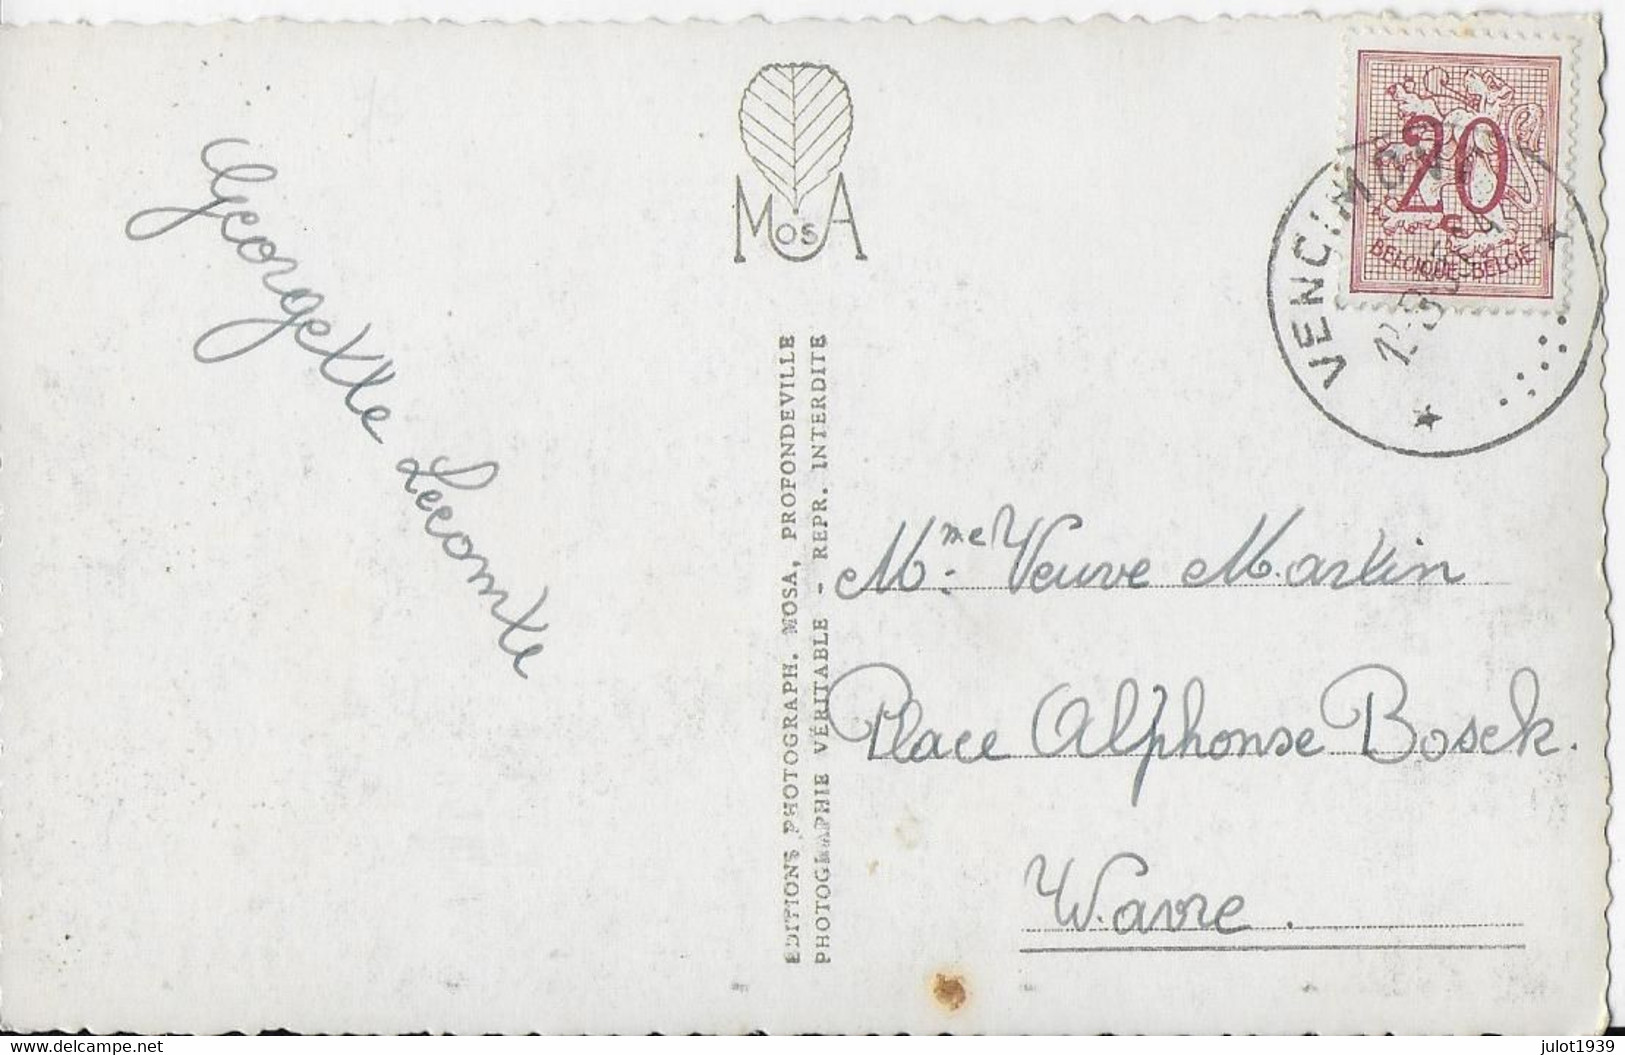 Georgette Lecomte
MosA
EDITIONS PHOTOGRAPH. MOSA, PROFONDEVILLE
PHOTOGRAPHIE VÉRITABLE - REPR. INTERDITE
20
c
BELGIQUE-BELGIË
VENCIMONT
Mme Veuve Martin
Place Alphonse Bosck.
Wavre.
delcampe.net
julot1939